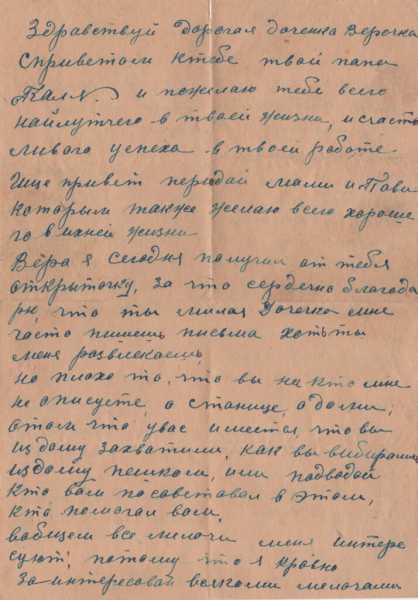 Здравствуй дорогая доченька Верочка
С приветом к тебе твой папа
и пожелаю тебе всего
найлутчего в твоей жизни, и счаст
ливого успеха в твоей работе.
Ище привет передай мами и Пави
которым также желаю всего хороше
го в ихней жизни
Вера я сегодня получил от тебя
открыточку, за что сердечно благода
рю, что ты милая Дочечка мне
часто пишешь письма хоть ты
меня развлекаеш,
но плохо то, что вы не кто мне
не описуете, о станице, о доми,
о том что увас имется, что вы
из дому захватили, как вы выбирались
из дому пешком, или подводой
кто вам посоветовал в этом,
кто помогал вам,
вобщем все мелочи меня интере
суют, потому что я кровно
за интересован всякими мелочами